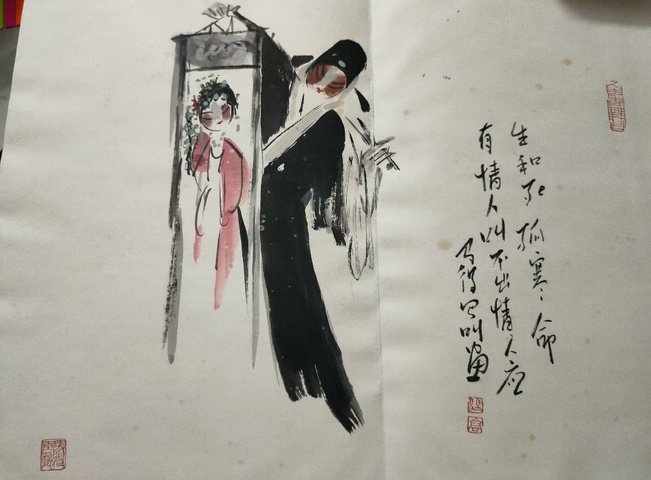 生和死孤寒命
有情人叫不出情人应
马得写叫画